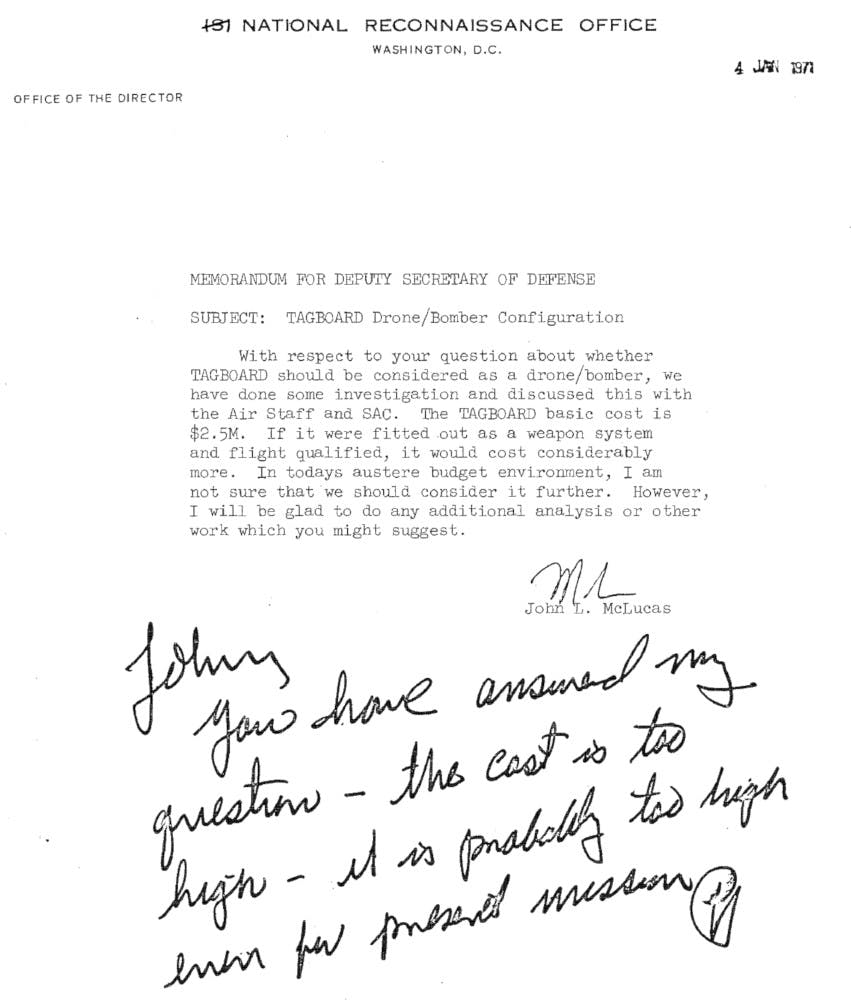 (S) NATIONAL RECONNAISSANCE OFFICE
WASHINGTON, D.C.
4 JAN 1971
OFFICE OF THE DIRECTOR
MEMORANDUM FOR DEPUTY SECRETARY OF DEFENSE
SUBJECT: TAGBOARD Drone/Bomber Configuration
With respect to your question about whether
TAGBOARD should be considered as a drone/bomber, we
have done some investigation and discussed this with
the Air Staff and SAC. The TAGBOARD basic cost is
$2.5M. If it were fitted out as a weapon system
and flight qualified, it would cost considerably
more. In todays austere budget environment, I am
not sure that we should consider it further. However,
I will be glad to do any additional analysis or other
work which you might suggest.
John L. McLucas
John,
You have answered my
question - the cost is too
high - it is probably too high
even for present mission